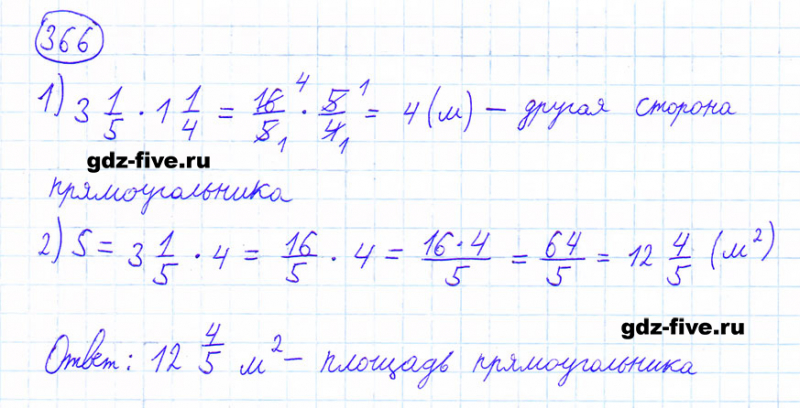 366
1) 3 1/5 · 1 1/4 = 16/5 · 5/4 = 4 (м) – другая сторона
gdz-five.ru
прямоугольника
2) S = 3 1/5 · 4 = 16/5 · 4 = 16·4/5 = 64/5 = 12 4/5 (м²)
gdz-five.ru
Ответ: 12 4/5 м² – площадь прямоугольника